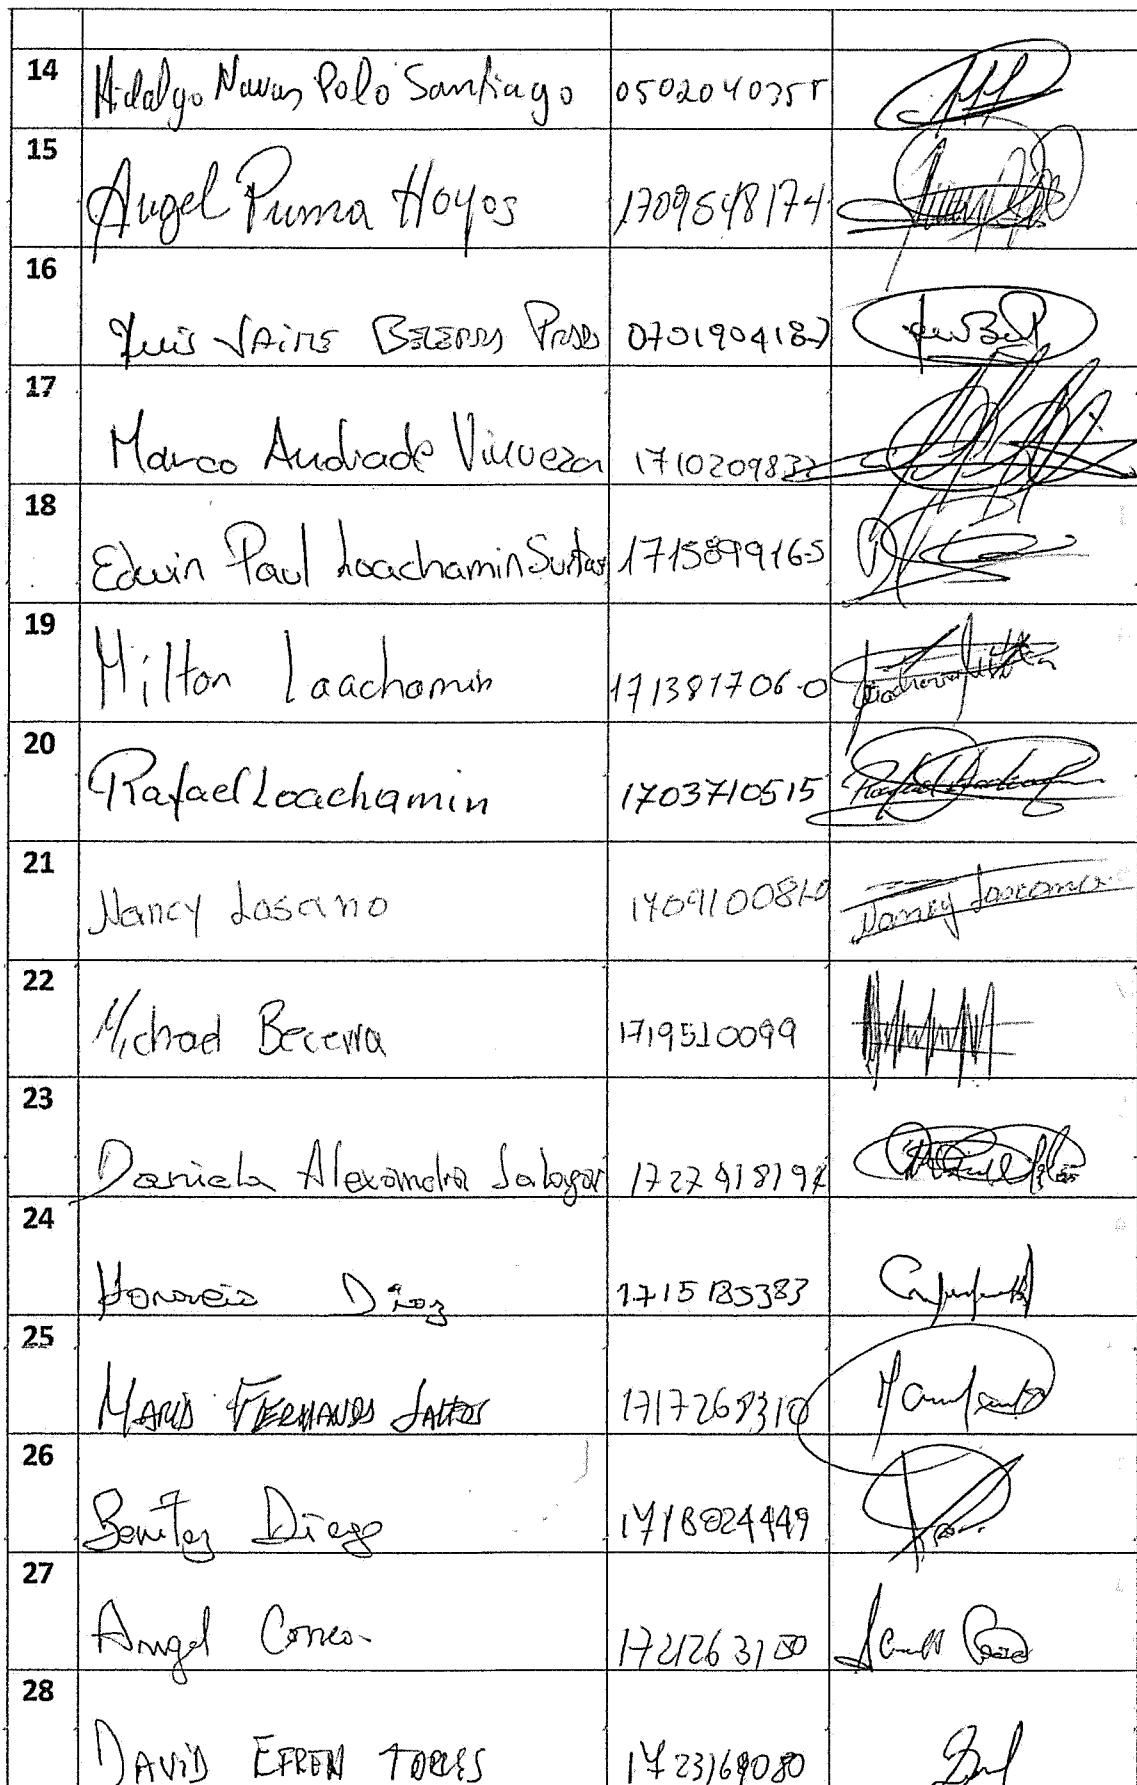 14 Hidalgo Navas Polo Santiago 0502040355
15 Angel Puma Hoyos 1709548174
16 Luis JAIME BECERRA 0701904187
17 Marco Andrade Vinueza 1710209832
18 Edwin Paul Loachamin Suntaxi 171589916-5
19 Milton Loachamin 171381706-0
20 Rafael Loachamin 1703710515
21 Nancy Losano 170910081-0
22 Michael Becerra 1719510099
23 Daniela Alexandra Salazar
24 Díaz 1715185383
25 MARIA FERNANDA SALTOS 1717268310
26 Benitez Diego 1718024449
27 Angel Correa
28 DAVID EFREN TORRES 1723169080